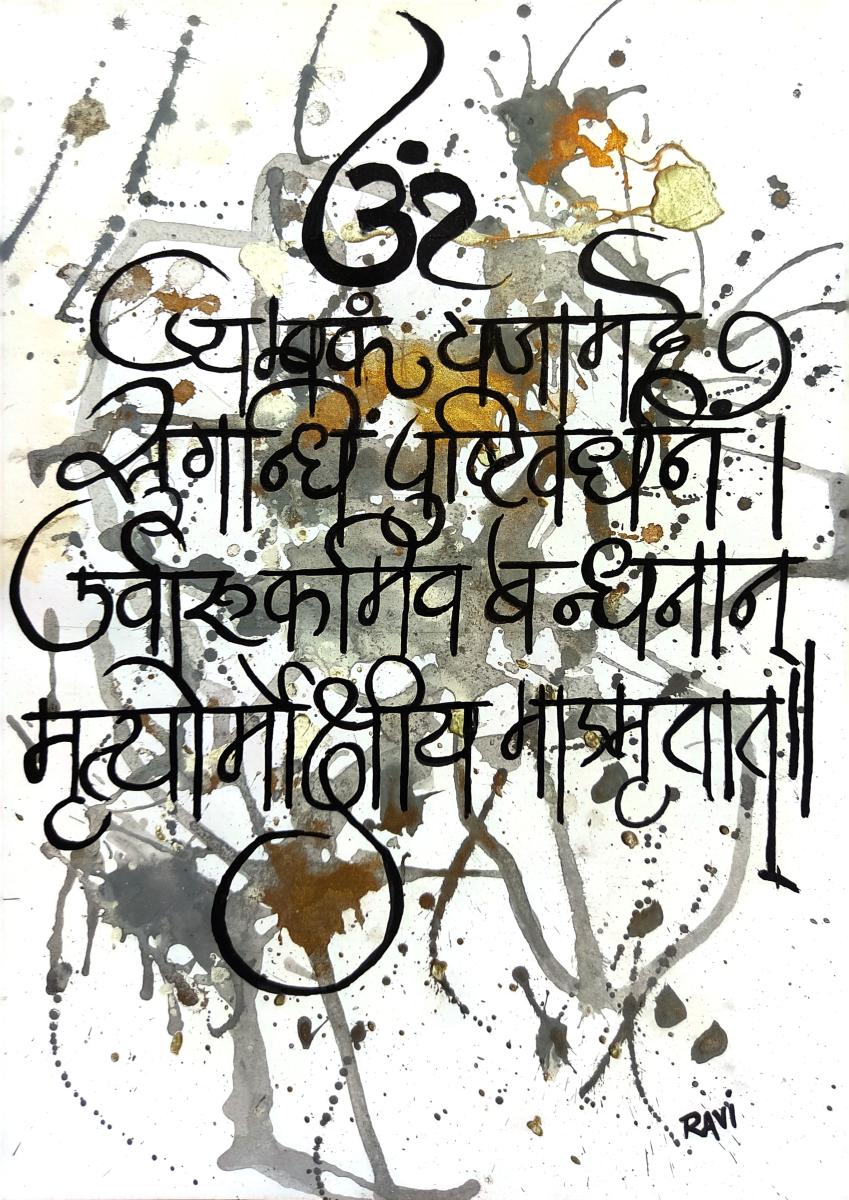 ॐ
त्र्यम्बकं यजामहे
सुगन्धिं पुष्टिवर्धनं ।
उर्वारुकमिव बन्धनान्
मृत्योर्मोक्षीय माऽमृतात् ॥
RAVI